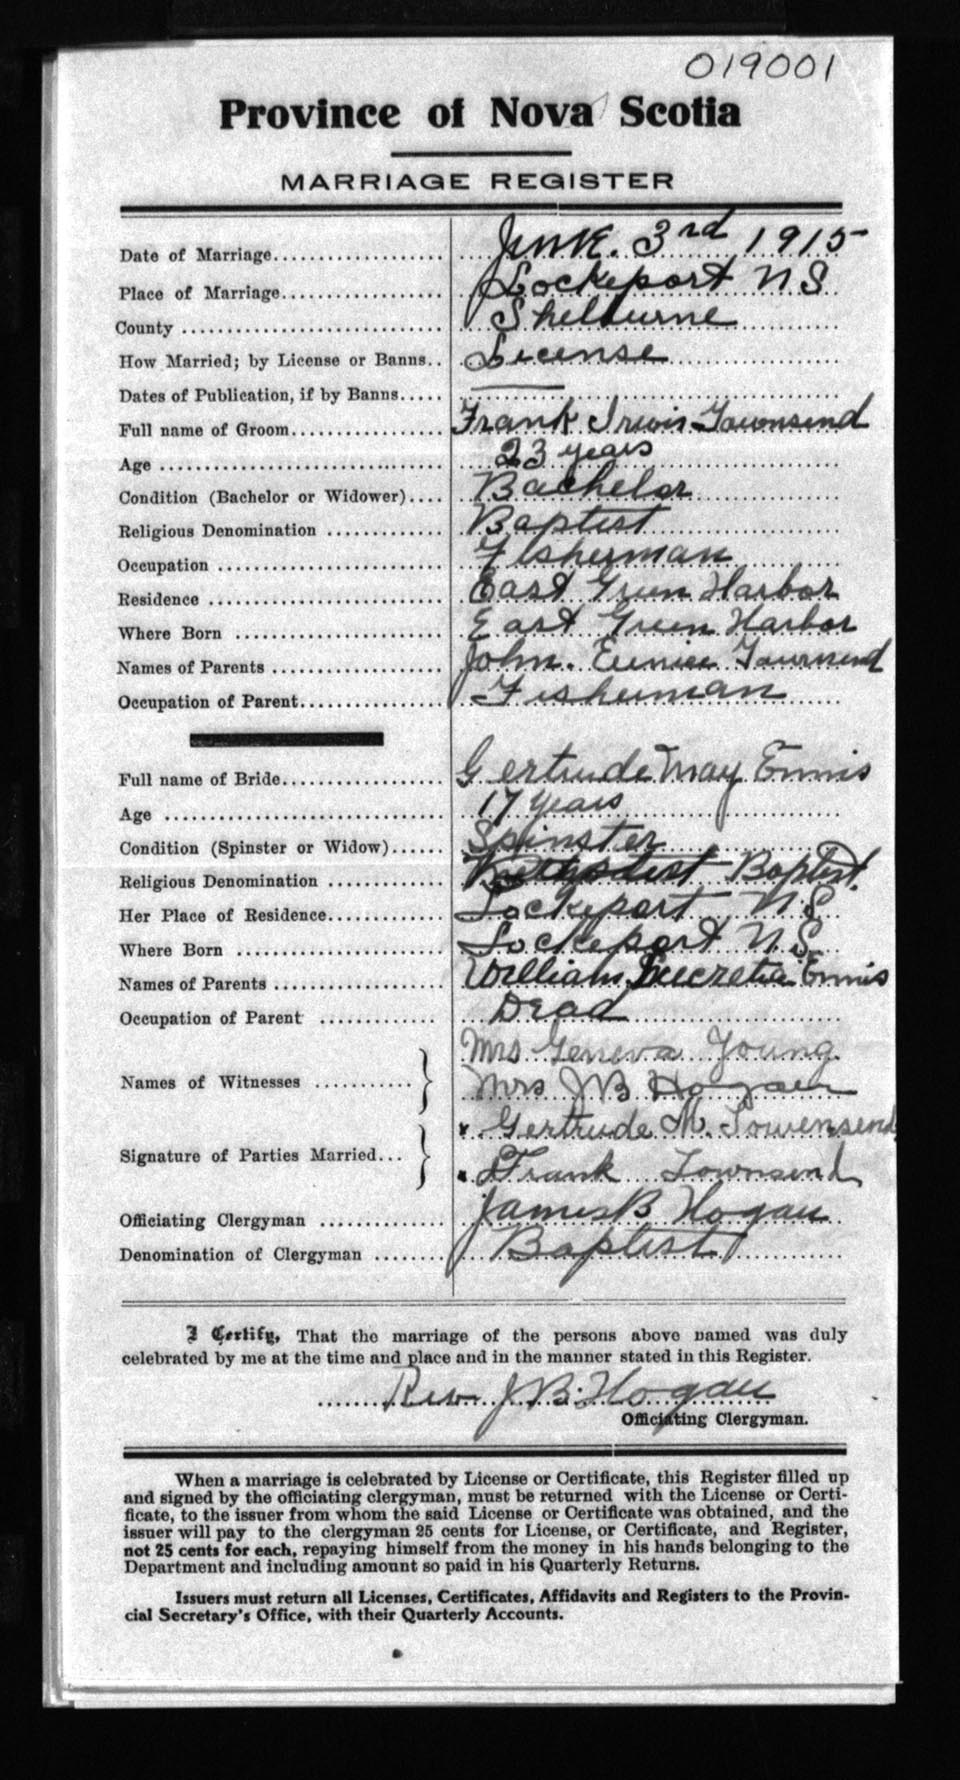 019001
Province of Nova Scotia
MARRIAGE REGISTER
Date of Marriage.................... June. 3rd 1915
Place of Marriage................... Lockeport N S
County ............................. Shelburne
How Married; by License or Banns.. License
Dates of Publication, if by Banns.....
Full name of Groom.................. Frank Irwin Townsend
Age ................................ 23 years
Condition (Bachelor or Widower).... Bachelor
Religious Denomination ............. Baptist
Occupation ......................... Fisherman
Residence .......................... East Green Harbor
Where Born ......................... East Green Harbor
Names of Parents ................... John. Eunice Townsend
Occupation of Parent................ Fisherman
Full name of Bride.................. Gertrude May Ennis
Age ................................ 17 years
Condition (Spinster or Widow)...... Spinster
Religious Denomination ............. Methodist Baptist.
Her Place of Residence.............. Lockeport N S
Where Born ......................... Lockeport N S
Names of Parents ................... William Lucretia Ennis
Occupation of Parent ............... Dead
Mrs Geneva Young
Names of Witnesses ............ } Mrs J B Hogan
x Gertrude M. Towensend
Signature of Parties Married... }
x Frank Townsend
Officiating Clergyman .............. James B Hogan
Denomination of Clergyman ......... Baptist
I Certify, That the marriage of the persons above named was duly
celebrated by me at the time and place and in the manner stated in this Register.
Rev J B. Hogan
Officiating Clergyman.
When a marriage is celebrated by License or Certificate, this Register filled up
and signed by the officiating clergyman, must be returned with the License or Certi-
ficate, to the issuer from whom the said License or Certificate was obtained, and the
issuer will pay to the clergyman 25 cents for License, or Certificate, and Register,
not 25 cents for each, repaying himself from the money in his hands belonging to the
Department and including amount so paid in his Quarterly Returns.
Issuers must return all Licenses, Certificates, Affidavits and Registers to the Provin-
cial Secretary's Office, with their Quarterly Accounts.